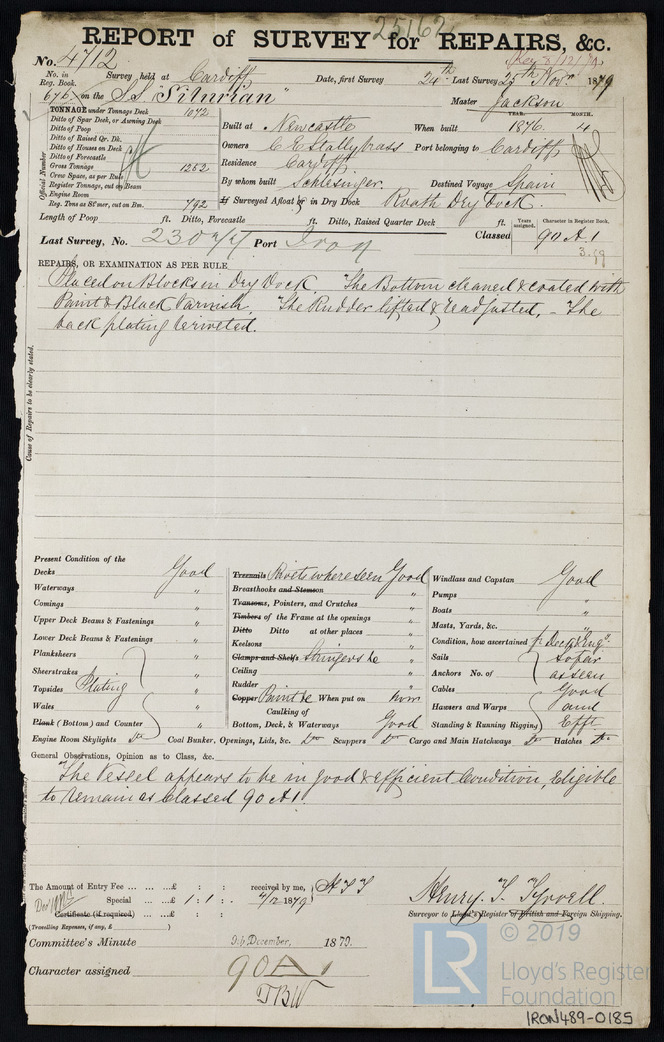 25162
REPORT of SURVEY for REPAIRS, &c.
No. 4712
No. in Reg. Book. Survey held at Cardiff Date, first Survey 24th Last Survey 25th Novr 1879
676 on the S.S. "Silurian" Master Jackson
TONNAGE under Tonnage Deck 1072
Ditto of Spar Deck, or Awning Deck
Ditto of Poop
Ditto of Raised Qr. Dk.
Ditto of Houses on Deck
Ditto of Forecastle
Gross Tonnage 1252
Crew Space, as per Rule
Register Tonnage, cut on Beam
Engine Room
Reg. Tons as St'mer, cut on Bm. 792
Official Number
YEAR. MONTH.
Built at Newcastle When built 1876. 4
Owners C E Stallybrass Port belonging to Cardiff
Residence Cardiff
By whom built Schlesinger. Destined Voyage Spain
If Surveyed Afloat or in Dry Dock Roath Dry Dock.
Length of Poop ft. Ditto, Forecastle ft. Ditto, Raised Quarter Deck ft.
Years assigned. Character in Register Book.
Last Survey, No. Port Iron Classed 90 A.1
3.79
REPAIRS, OR EXAMINATION AS PER RULE
Placed on Blocks in Dry Dock. The Bottom cleaned & coated with
Paint & Black Varnish. The Rudder lifted & readjusted, - The
back plating reriveted.
Cause of Repairs to be clearly stated.
Present Condition of the
Decks Good
Waterways "
Comings "
Upper Deck Beams & Fastenings "
Lower Deck Beams & Fastenings "
Planksheers "
Sheerstrakes "
Topsides Plating "
Wales "
Plank (Bottom) and Counter "
Engine Room Skylights Do Coal Bunker, Openings, Lids, &c. Do Scuppers Do Cargo and Main Hatchways Do Hatches Do
Treenails Rivets where seen Good
Breasthooks and Stemson "
Transoms, Pointers, and Crutches "
Timbers of the Frame at the openings "
Ditto Ditto at other places "
Keelsons "
Clamps and Shelfs Stringers &c "
Ceiling "
Rudder "
Copper Paint &c When put on now
Caulking of
Bottom, Deck, & Waterways Good
Windlass and Capstan Good
Pumps "
Boats "
Masts, Yards, &c. "
Condition, how ascertained fr Deck & Engs
Sails so far
Anchors No. of as seen
Cables Good
Hawsers and Warps and
Standing & Running Rigging Efft
General Observations, Opinion as to Class, &c.
The Vessel appears to be in good & efficient Condition, Eligible
to remain as Classed 90 A1.
The Amount of Entry Fee ... ... ...£ : : received by me,
Special ... ...£ 1 : 1 : . 4/12 1879
Certificate (if required) ...£ : :
(Travelling Expenses, if any, £ )
Henry. T. Tyrrell.
Surveyor to Lloyd's Register of British and Foreign Shipping.
Committee's Minute 9th December, 1879.
Character assigned 90 A 1
TBW
LR
© 2019
Lloyd's Register
Foundation
IRON489-0185